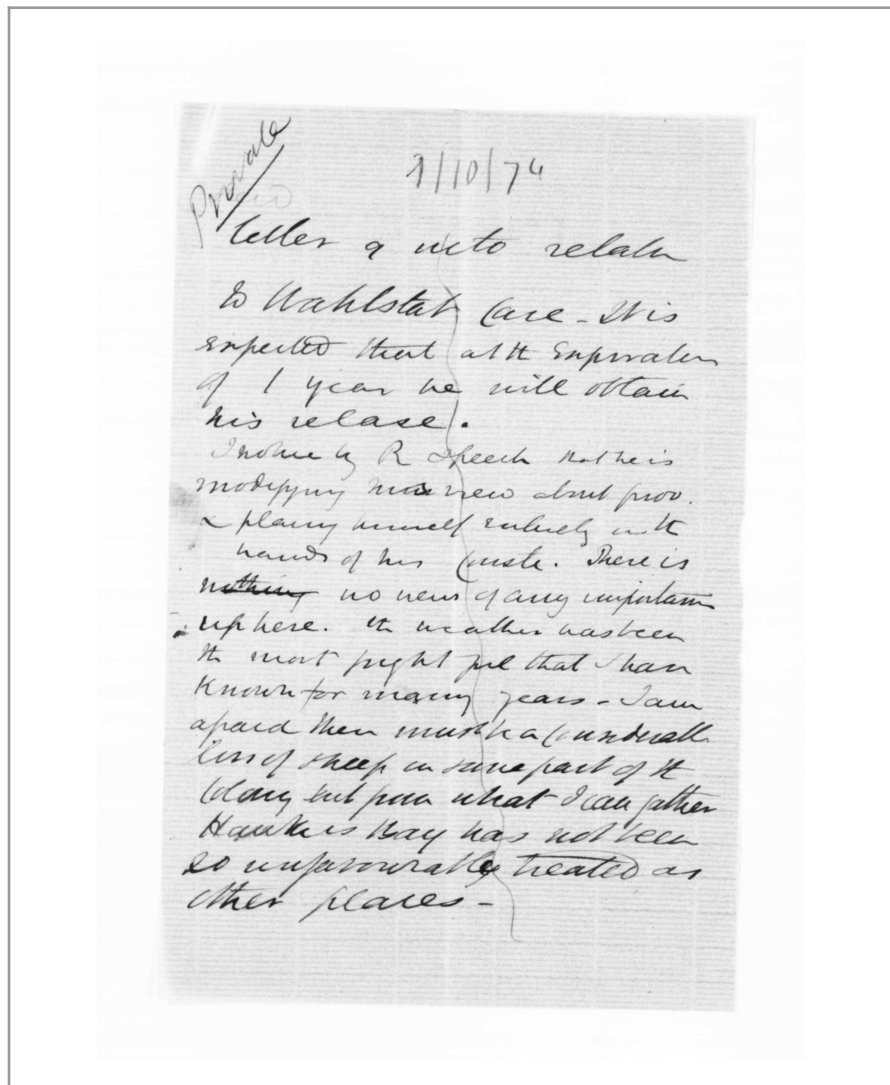 Private
/10/74
letter & note relative
to Wahlstab Case - It is
expected that at the Expiration
of 1 year he will obtain
his relase.
I notice by R speech that he is
modifying his view about prov.
& placing himself entirely in the
hands of his Consts. There is
nothing no news of any importance
up here. the weather has been
the most frightful that I have
Known for many years - I am
afraid there must be a Considerable
loss of sheep in some part of the
Colony but from what I can gather
Hawkes Bay has not been
so unfavourably treated as
other places -